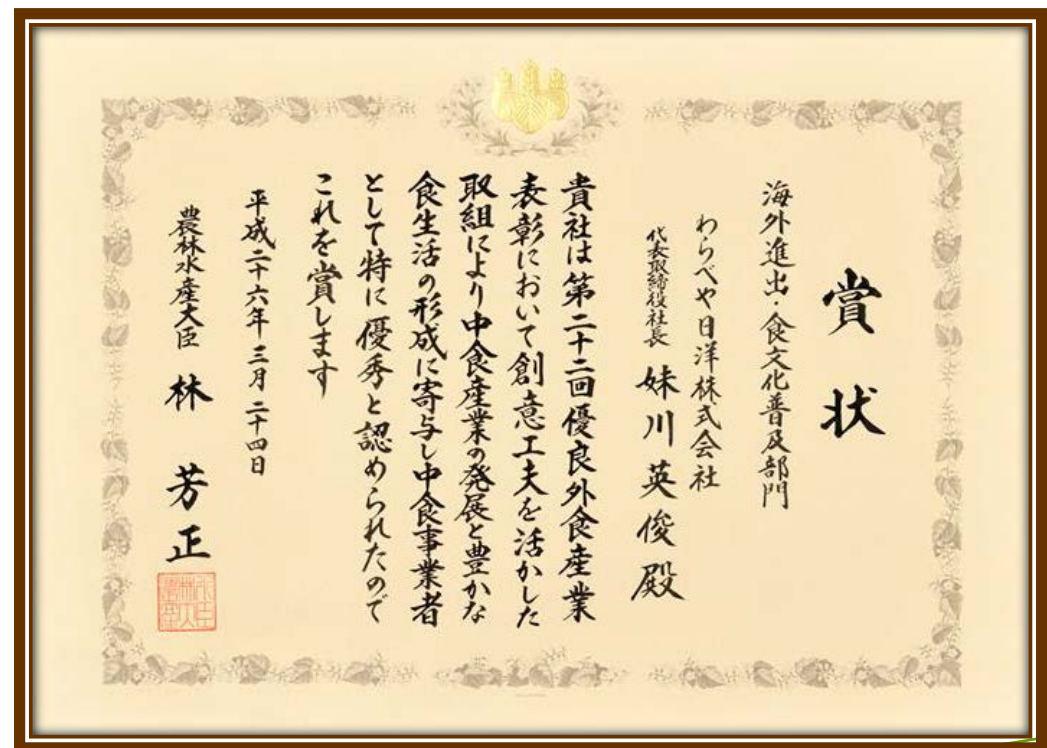 賞状
海外進出・食文化普及部門
わらべや日洋株式会社
代表取締役社長 妹川英俊殿
貴社は第二十二回優良外食産業
表彰において創意工夫を活かした
取組により中食産業の発展と豊かな
食生活の形成に寄与し中食事業者
として特に優秀と認められたので
これを賞します
平成二十六年三月二十四日
農林水産大臣 林芳正